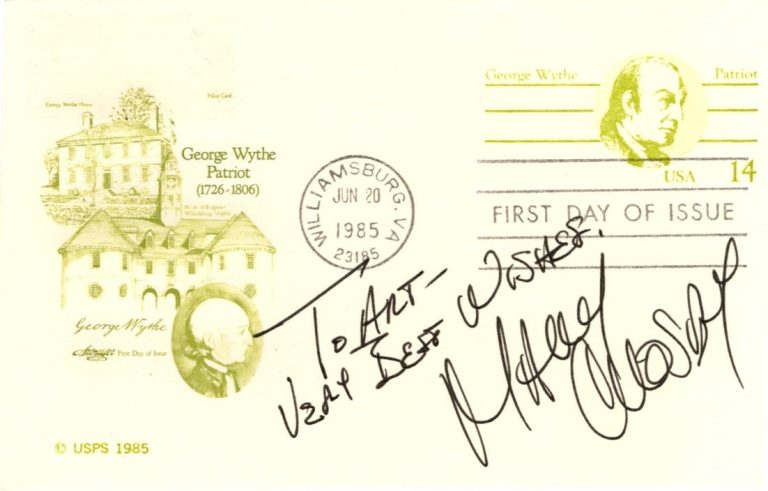 George Wythe House
Postal Card
George Wythe
Patriot
(1726-1806)
House of Burgesses
Williamsburg, Virginia
George Wythe
First Day of Issue
© USPS 1985
WILLIAMSBURG, VA
JUN 20
1985
23185
George Wythe Patriot
USA 14
FIRST DAY OF ISSUE
To Art—
Very Best Wishes.